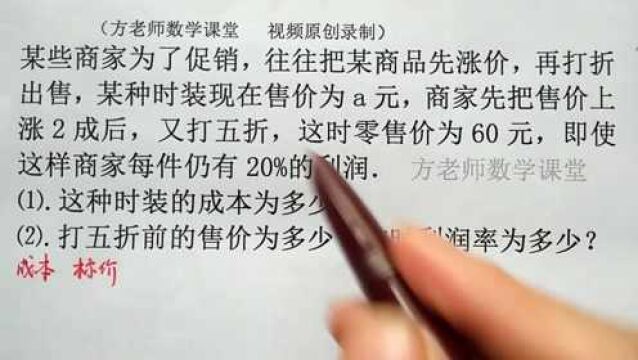 （方老师数学课堂　视频原创录制）
某些商家为了促销，往往把某商品先涨价，再打折
出售，某种时装现在售价为 a 元，商家先把售价上
涨 2 成后，又打五折，这时零售价为 60 元，即使
这样商家每件仍有 20%的利润．
方老师数学课堂
⑴．这种时装的成本为多少
⑵．打五折前的售价为多少 利润率为多少？
成本 标价